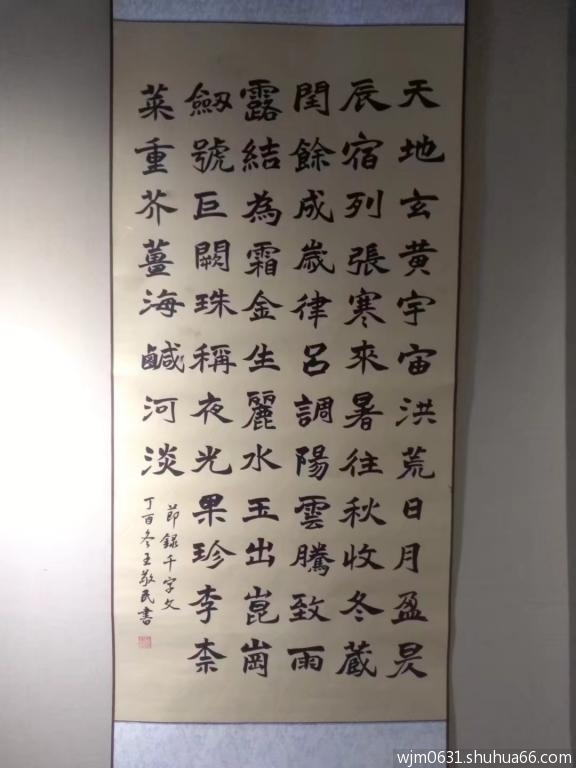 天地玄黃宇宙洪荒日月盈昃
辰宿列張寒來暑往秋收冬蔵
閏餘成歲律呂調陽雲騰致雨
露結為霜金生麗水玉出崑崗
劔號巨闕珠稱夜光果珍李柰
菜重芥薑海鹹河淡
節録千字文
丁酉冬王敬民書
wjm0631.shuhua66.com